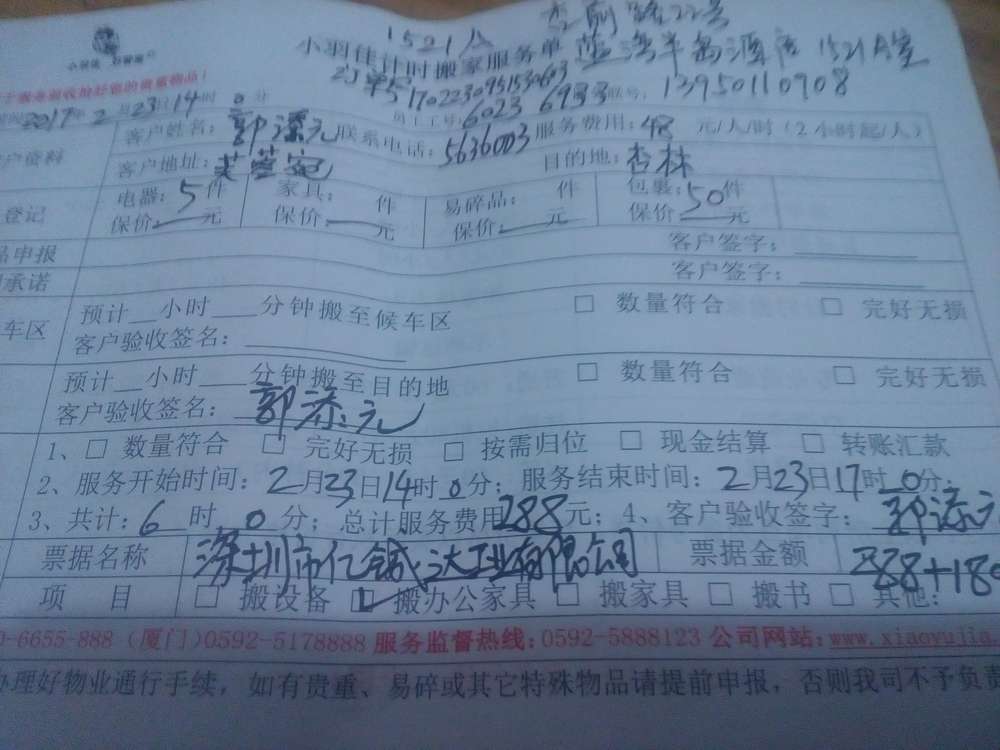 1521人
杏前路22号
小羽佳计时搬家服务单 蓝海半岛酒店 1521A室
订单号170223095153603
13950110908
2017年2月23日14时0分
员工工号:6023 6933
客户姓名:郭添元 联系电话:5636003 服务费用:48 元/人/时(2小时起/人)
户资料
客户地址:芙蓉苑 目的地:杏林
登记 电器:5件 家具: 件 易碎品: 件 包裹:50件
保价 元 保价 元 保价 元 保价 元
品申报 客户签字:
承诺 客户签字:
车区 预计__小时___分钟搬至候车区 □ 数量符合 □ 完好无损
客户验收签名:
预计__小时___分钟搬至目的地 □ 数量符合 □ 完好无损
客户验收签名:郭添元
1、□ 数量符合 □ 完好无损 □ 按需归位 □ 现金结算 □ 转账汇款
2、服务开始时间:2月23日14时0分;服务结束时间:2月23日17时0分;
3、共计:6时0分;总计服务费用288元;4、客户验收签字:郭添元
票据名称 深圳市亿铖达工业有限公司 票据金额 288+180
项 目 □ 搬设备 ☑ 搬办公家具 □ 搬家具 □ 搬书 □ 其他:
0-6655-888 (厦门)0592-5178888 服务监督热线:0592-5888123 公司网站:www.xiaoyujia.
办理好物业通行手续,如有贵重、易碎或其它特殊物品请提前申报,否则我司不予负责